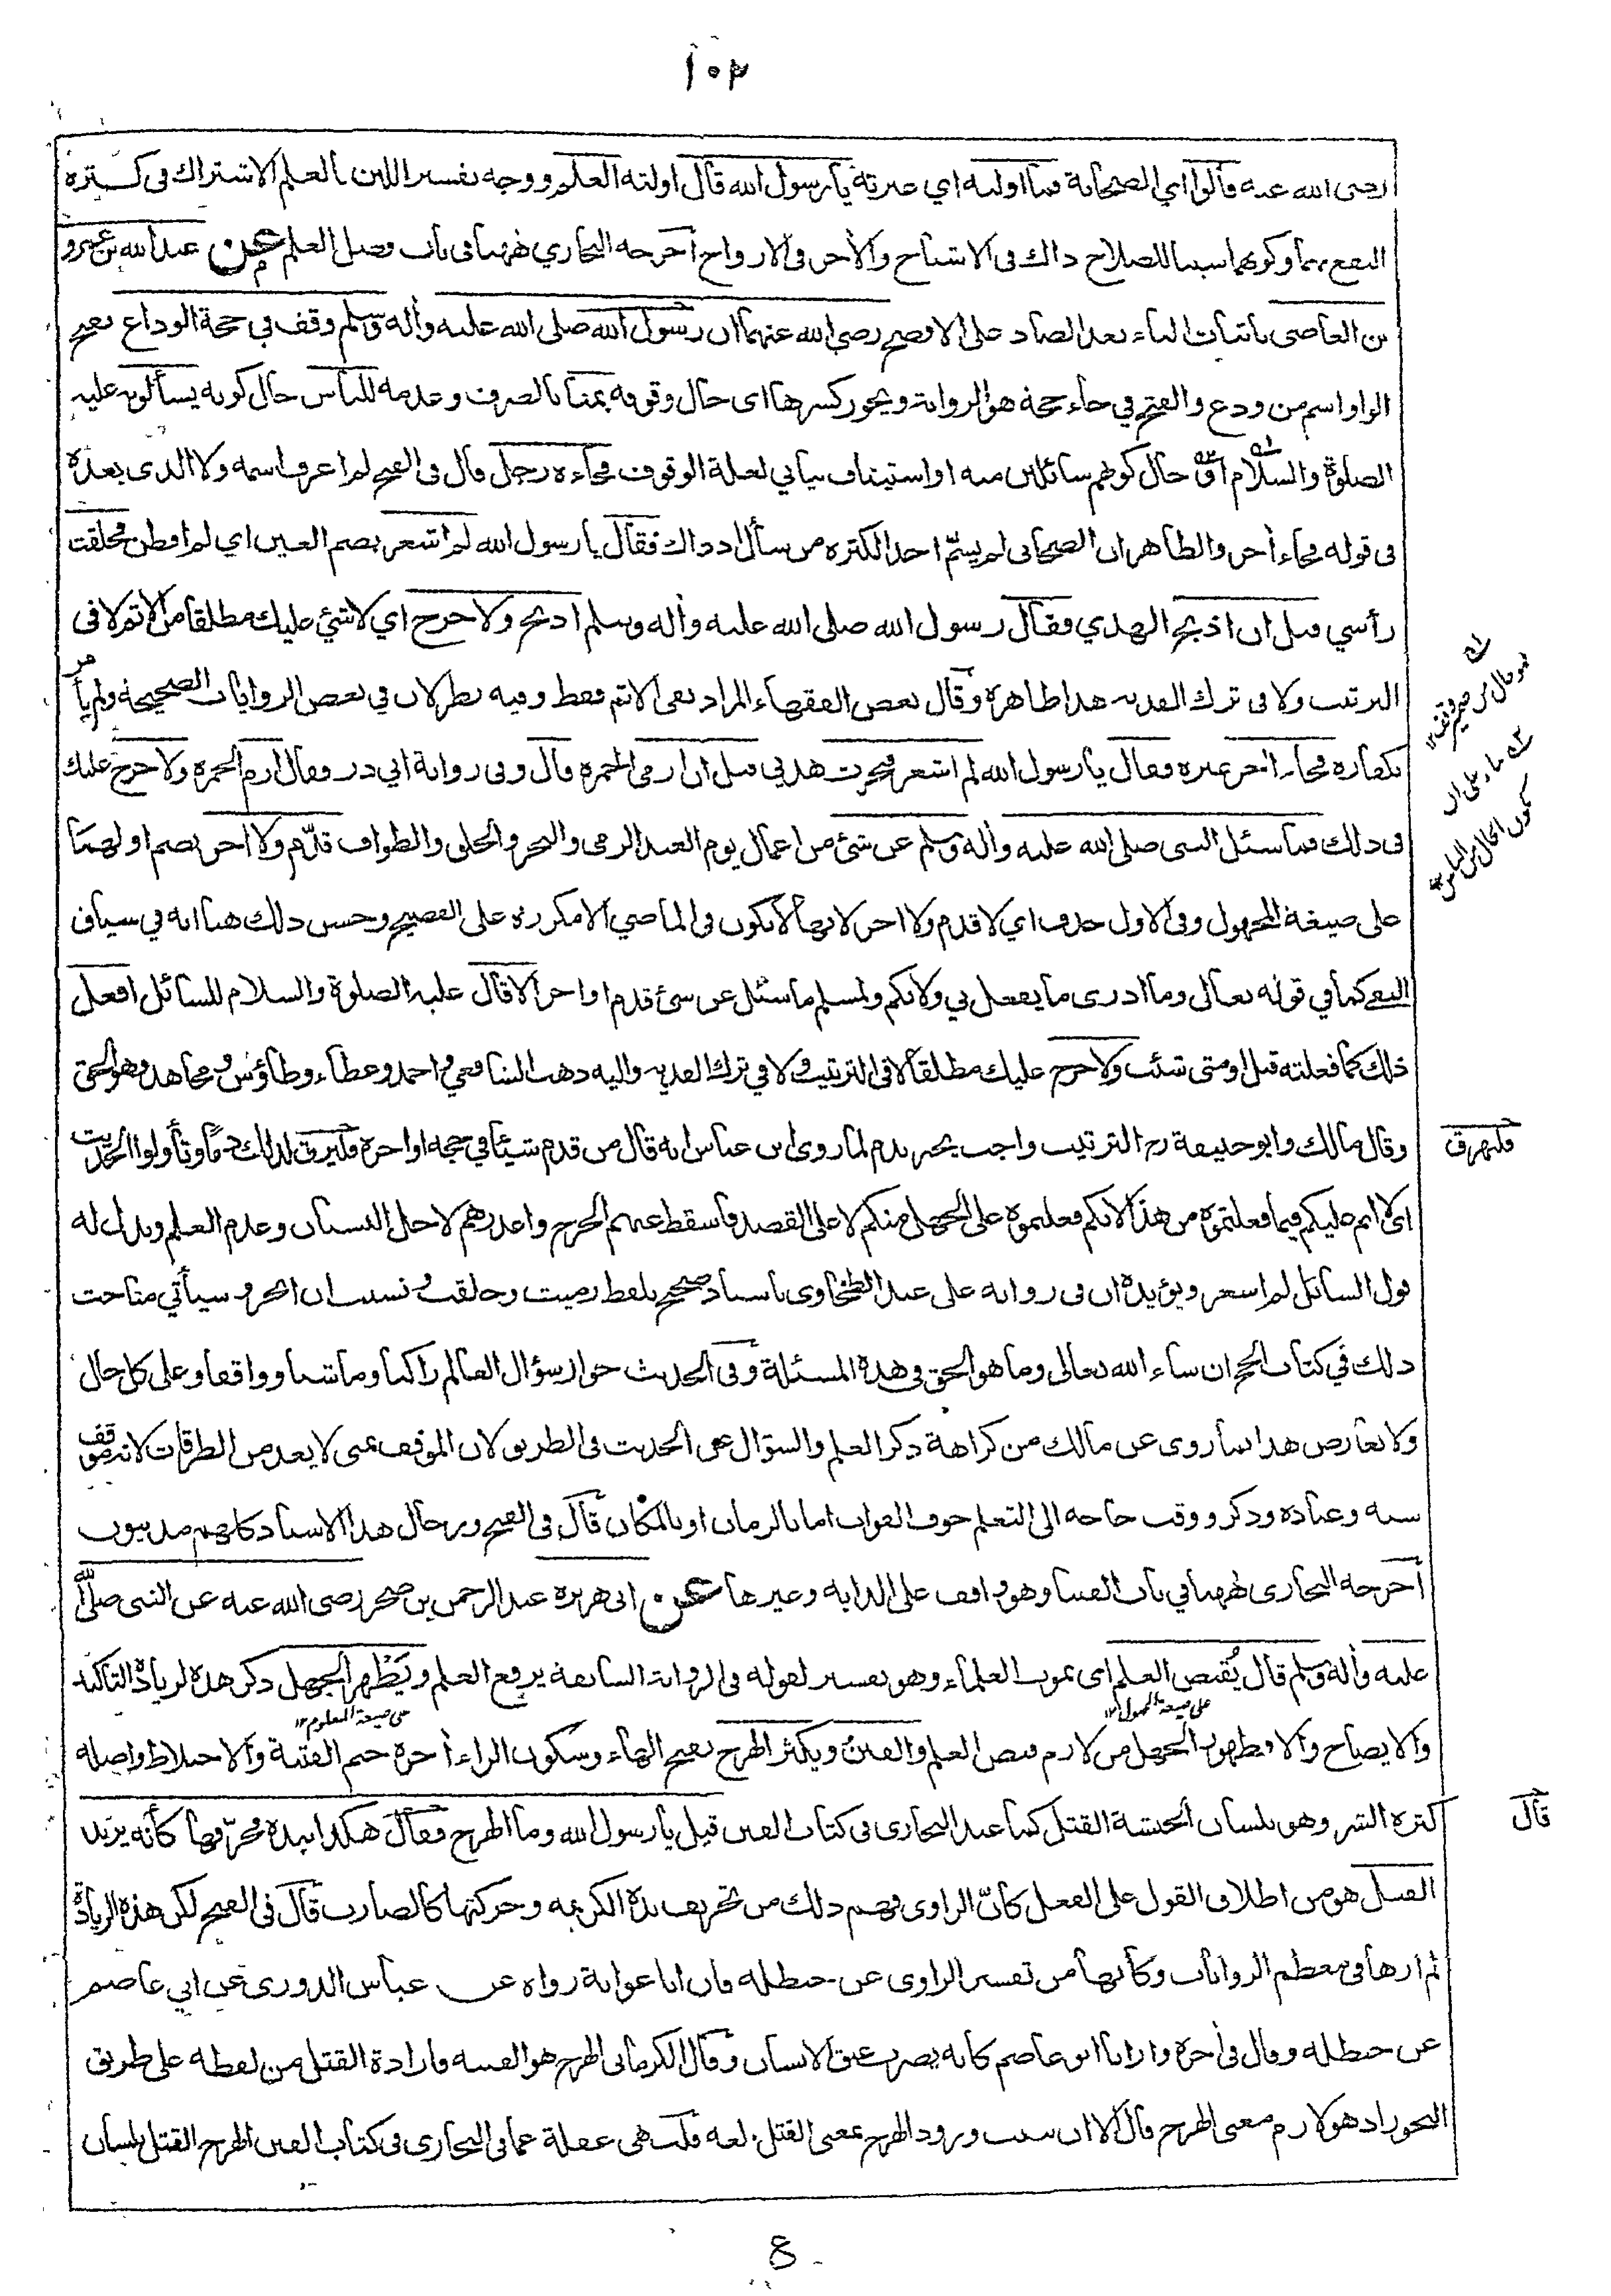 ١٠٣
رضى الله عنه قالوا اي الصحابة فما اولته اي عبرته يا رسول الله قال اولته العلم ووجه تفسير اللبن بالعلم الاشتراك فى كثرة
النفع بهما وكونهما سببا للصلاح ذاك فى الاشباح والأخر فى الارواح أخرجه البخاري ههنا فى باب فضل العلم عن عبد الله بن عمرو
بن العاصى باثبات الياء بعد الصاد على الافصح رضي الله عنهما ان رسول الله صلى الله عليه وأله وسلم وقف في حجة الوداع بفتح
الواو اسم من ودع والفتح في حاء حجة هو الرواية ويجوز كسرها اى حال وقوفه بمنا بالصرف وعدمه للناس حال كونه يسألونه عليه
الصلوة والسلام او حال كونهم سائلين منه او استيناف بياني لعلة الوقوف فجاءه رجل قال فى الفتح لم اعرف اسمه ولا الذى بعده
فى قوله فجاء أخر والظاهر ان الصحابى لم يسمّ احدا لكثرة من سأل اذ ذاك فقال يا رسول الله لم اشعر بضم العين اي لم افطن فحلقت
رأسي قبل ان اذبح الهدي فقال رسول الله صلى الله عليه وأله وسلم اذبح ولا حرج اي لا شئ عليك مطلقا من الاثم لا فى
الترتيب ولا فى ترك الفدية هذا ظاهره وقال بعض الفقهاء المراد نفى الاثم فقط وفيه نظر لان في بعض الروايات الصحيحة ولم يأمر
بكفارة فجاء أخر غيره فقال يا رسول الله لم اشعر فنحرت هديي قبل ان ارمى الجمرة قال وفى رواية ابي ذر فقال ارم الجمرة ولا حرج عليك
فى ذلك فما سئل النبى صلى الله عليه وأله وسلم عن شئ من اعمال يوم العيد الرمى والنحر والحلق والطواف قدّم ولا اخر بضم اولهما
على صيغة المجهول وفى الاول حذف اي لا قدم ولا اخر لانها لا تكون فى الماضي الا مكررة على الفصيح وحسن ذلك هنا انه في سياق
النفى كما في قوله تعالى وما ادرى ما يفعل بي ولا بكم ولمسلم ما سئل عن شئ قدم او اخر الا قال عليه الصلوة والسلام للسائل افعل
ذلك كما فعلته قبل او متى شئت ولا حرج عليك مطلقا لا فى الترتيب ولا في ترك الفدية واليه ذهب الشافعي واحمد وعطاء وطاؤس ومجاهد وهو الحق
وقال مالك وابو حنيفة رح الترتيب واجب يجبر بدم لما روى ابن عباس انه قال من قدم شيئا في حجه او اخره فليرق لذلك دما وتأولوا الحديث
اى لا اثم عليكم فيما فعلتموه من هذا لانكم فعلتموه على الجهل منكم لا على القصد فاسقط عنهم الحرج واعذرهم لاجل النسيان وعدم العلم ويدل له
قول السائل لم اشعر ويؤيده ان فى رواية على عند الطحاوى باسناد صحيح بلفظ رميت وحلقت ونسيت ان انحر وسيأتي مباحث
ذلك في كتاب الحج ان شاء الله تعالى وما هو الحق فى هذه المسئلة وفى الحديث جواز سؤال العالم راكبا وماشيا وواقفا وعلى كل حال
ولا يعارض هذا بما روى عن مالك من كراهة ذكر العلم والسؤال عن الحديث فى الطريق لان الموقف بمنى لا يعد من الطرقات لانه موقف
سنة وعبادة وذكر ووقت حاجة الى التعلم خوف الفوات اما بالزمان او بالمكان قال فى الفتح ورجال هذا الاسناد كلهم مدنيون
أخرجه البخارى ههنا في باب الفتيا وهو واقف على الدابة وغيرها عن ابى هريرة عبد الرحمن بن صخر رضى الله عنه عن النبى صلى الله
عليه وأله وسلم قال يُقبض العلم اى بموت العلماء وهو تفسير لقوله فى الرواية السابقة يرفع العلم ويَظْهر الجهل ذكر هذه لزيادة التاكيد
على صيغة المجهول ١٢
على صيغة المعلوم ١٢
والايضاح والا فظهور الجهل من لازم قبض العلم والفتن ويكثر الهرج بفتح الهاء وسكون الراء أخره جيم الفتنة والاختلاط واصله
كثرة الشر وهو بلسان الحبشة القتل كما عند البخارى فى كتاب الفتن قيل يا رسول الله وما الهرج فقال هكذا بيده فحرّفها كأنه يريد
القتل هو من اطلاق القول على الفعل كانّ الراوى فهم ذلك من تحريف يده الكريمة وحركتها كالضارب قال فى الفتح لكن هذه الزيادة
لم ارها فى معظم الروايات وكأنها من تفسير الراوى عن حنظلة فان ابا عوانة رواه عن عباس الدورى عن ابي عاصم
عن حنظلة وقال فى أخره وارانا ابو عاصم كانه يضرب عنق الانسان وقال الكرمانى الهرج هو الفتنة فارادة القتل من لفظه على طريق
التجوز اذ هو لازم معنى الهرج قال الا ان يثبت ورود الهرج بمعنى القتل لغة قلت هى غفلة عما فى البخارى فى كتاب الفتن الهرج القتل بلسان
فليهرق
قال